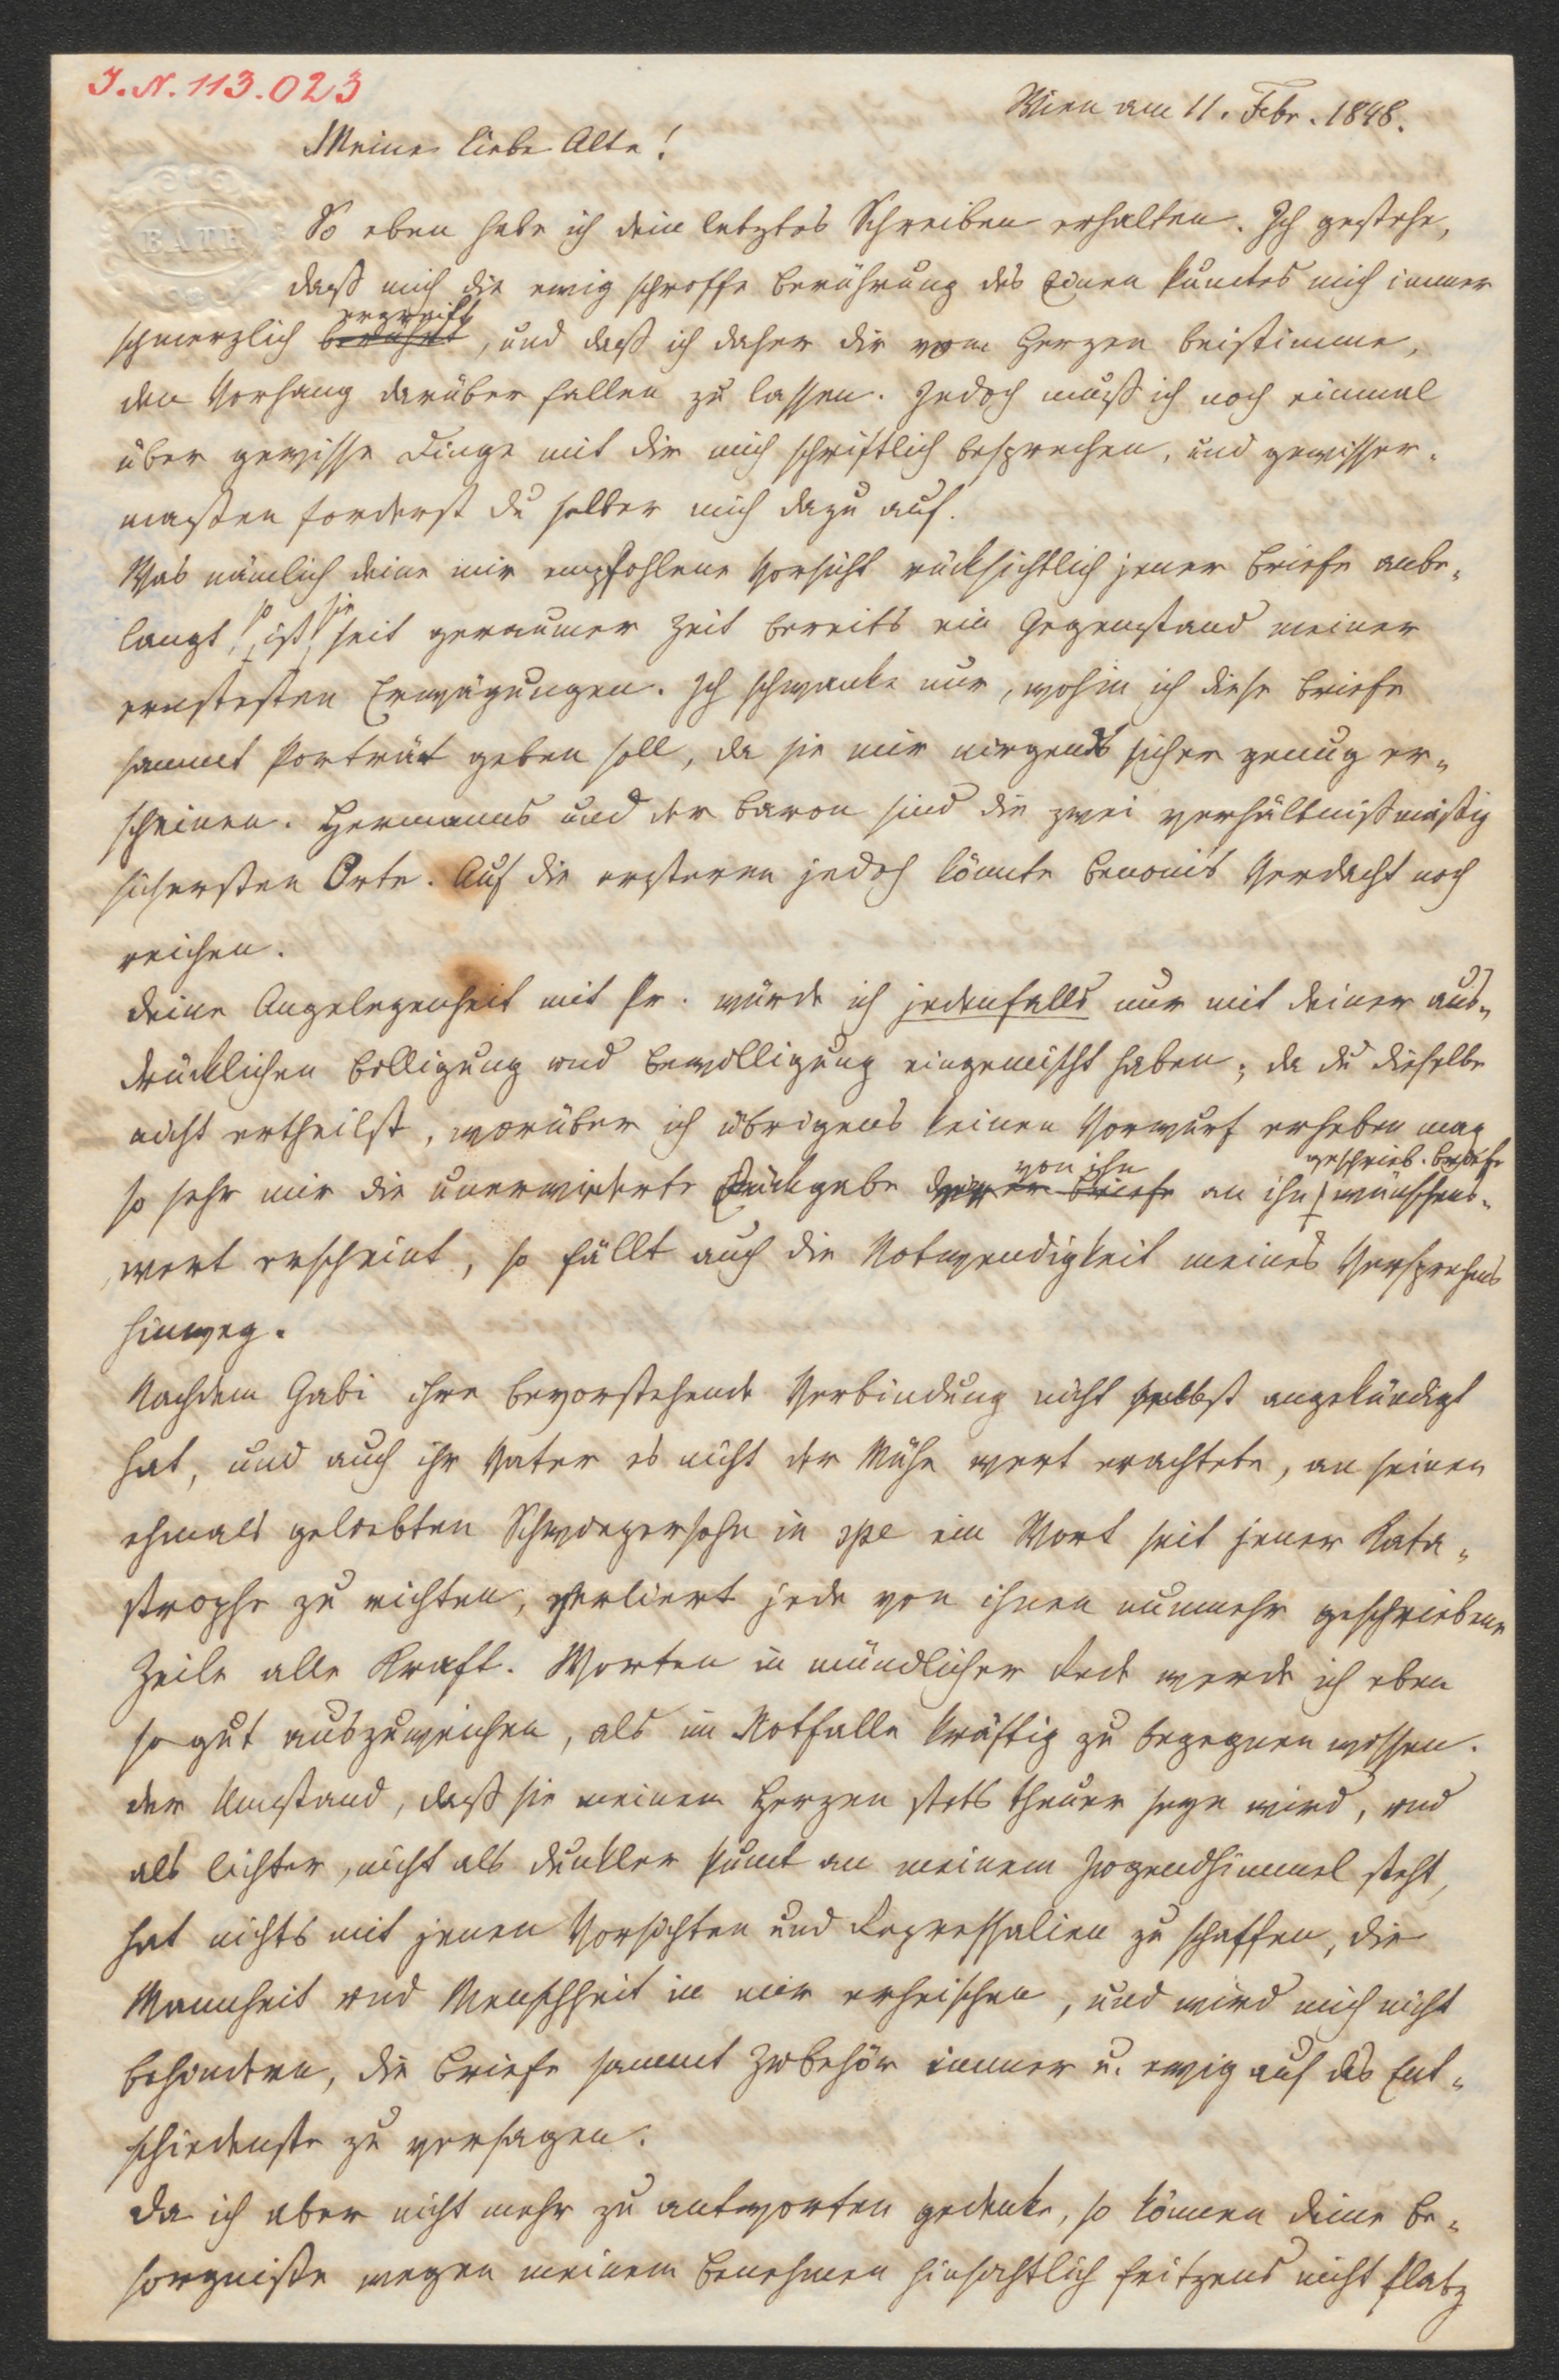 I. N. 113.023
Wien am 11. Febr. 1848.
Meine liebe Alte!
BATH
So eben habe ich dein letztes Schreiben erhalten. Ich gestehe,
daß mich die ewig schroffe Berührung des Einen Punctes mich immer
ergreift
schmerzlich berührt, und daß ich daher dir vom Herzen beistimme,
den Vorhang darüber fallen zu lassen. Jedoch muß ich noch einmal
über gewisse Dinge mit dir mich schriftlich besprechen, und gewisser-
maßen forderst du selber mich dazu auf.
Was nämlich deine mir empfohlene Vorsicht rücksichtlich jener Briefe anbe-
so sie
langt, ist seit geraumer Zeit bereits ein Gegenstand meiner
ernstesten Erwägungen. Ich schwanke nur, wohin ich diese Briefe
sammt Porträt geben soll, da sie mir nirgends sicher genug er-
scheinen. Hermanns und der Baron sind die zwei verhältnißmäßig
sichersten Orte. Auf die ersteren jedoch könnte Benonis Verdacht noch
reichen.
Deine Angelegenheit mit Pr. würde ich jedenfalls nur mit deiner aus-
drücklichen Billigung und Bewilligung eingemischt haben; da du dieselbe
nicht ertheilst, worüber ich übrigens keinen Vorwurf erheben mag
von ihm geschrieb. Briefe
so sehr mir die unerwiederte Rückgabe deiner Briefe an ihn wünschens-
wert erscheint, so fällt auch die Notwendigkeit meines Versprechens
hinweg.
Nachdem Gabi ihre bevorstehende Verbindung nicht selbst angekündigt
hat, und auch ihr Vater es nicht der Mühe wert erachtete, an seinen
ehmals geliebten Schwiegersohn in spe ein Wort seit jener Kata-
strophe zu richten, verliert jede von ihnen nunmehr geschriebene
Zeile alle Kraft. Worten in mündlicher Rede werde ich eben
so gut auszuweichen, als im Notfalle kräftig zu begegnen wissen.
Der Umstand, daß sie meinem Herzen stets theuer seyn wird, und
als lichter, nicht als dunkler Punct an meinem Jugendhimmel steht,
hat nichts mit jenen Vorsichten und Repressalien zu schaffen, die
Mannheit und Menschheit in mir erheischen, und wird mich nicht
behindern, die Briefe sammt Zubehör immer u. ewig auf das Ent-
schiedenste zu versagen.
Da ich aber nicht mehr zu antworten gedenke, so können deine Be-
sorgnisse wegen meinem Benehmen hinsichtlich Fritzens nicht Platz